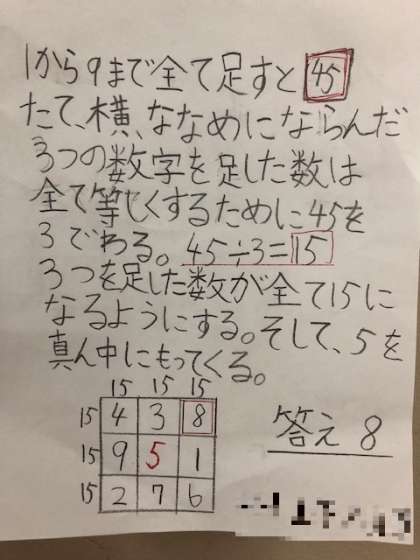 1から9まで全て足すと45
たて、横、ななめにならんだ
3つの数字を足した数は
全て等しくするために45を
3でわる。45÷3=15
3つを足した数が全て15に
なるようにする。そして、5を
真ん中にもってくる。
15 15 15
15 4 3 8
15 9 5 1
15 2 7 6
答え 8